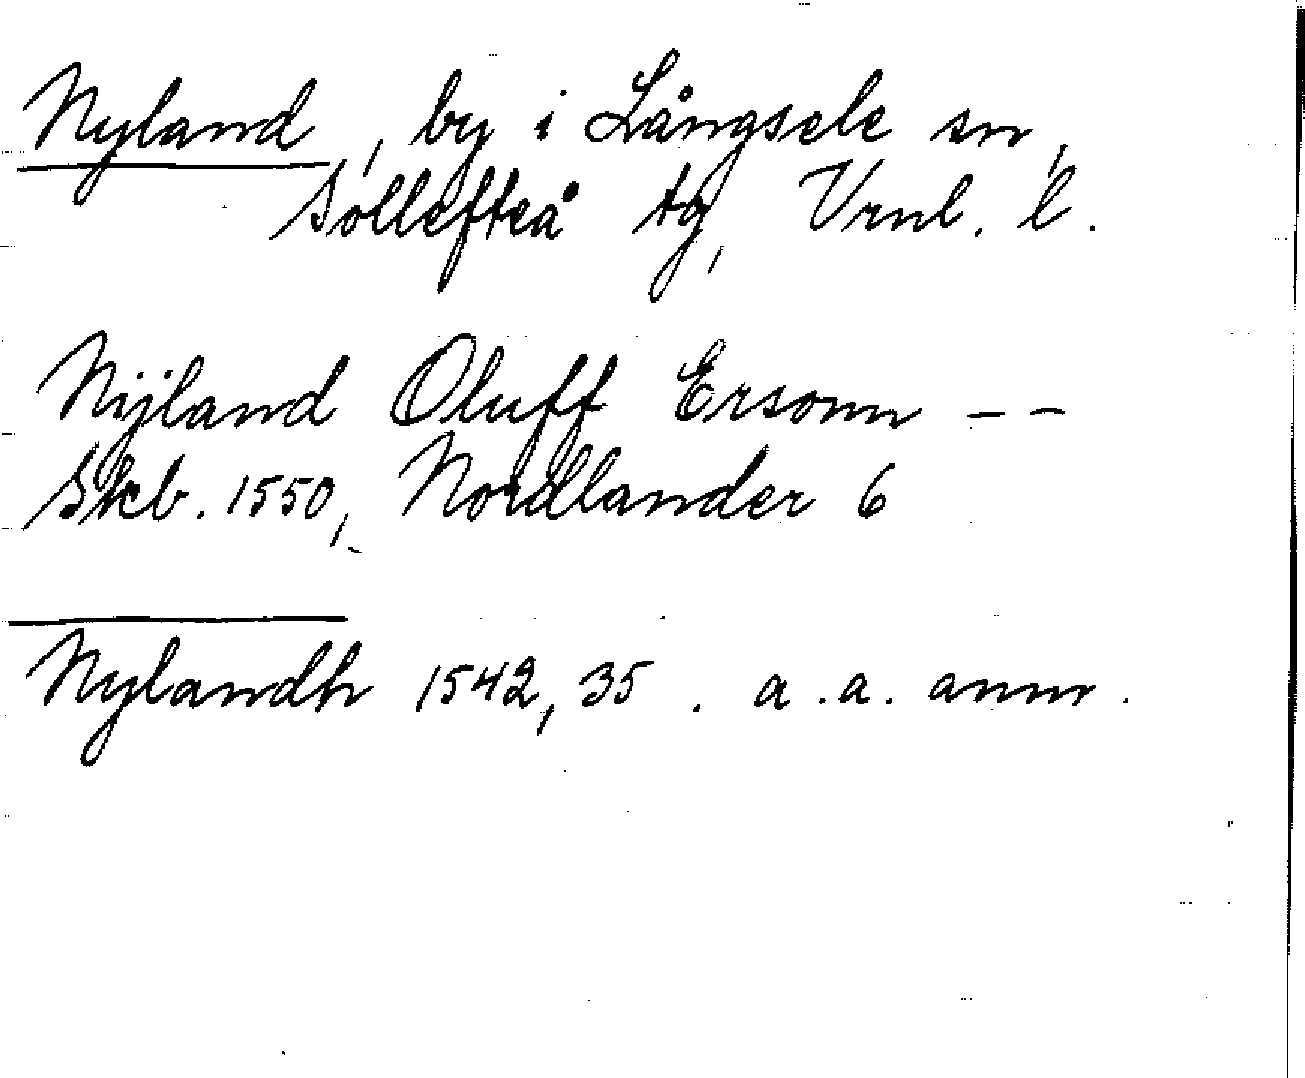 Nyland, by i Långsele sn,
Sollefteå tg, Vrnl. l.
Nÿland Oluff Ersonn - -
Skb. 1550, Nordlander 6
Nylandh 1542, 35. a.a. anm.